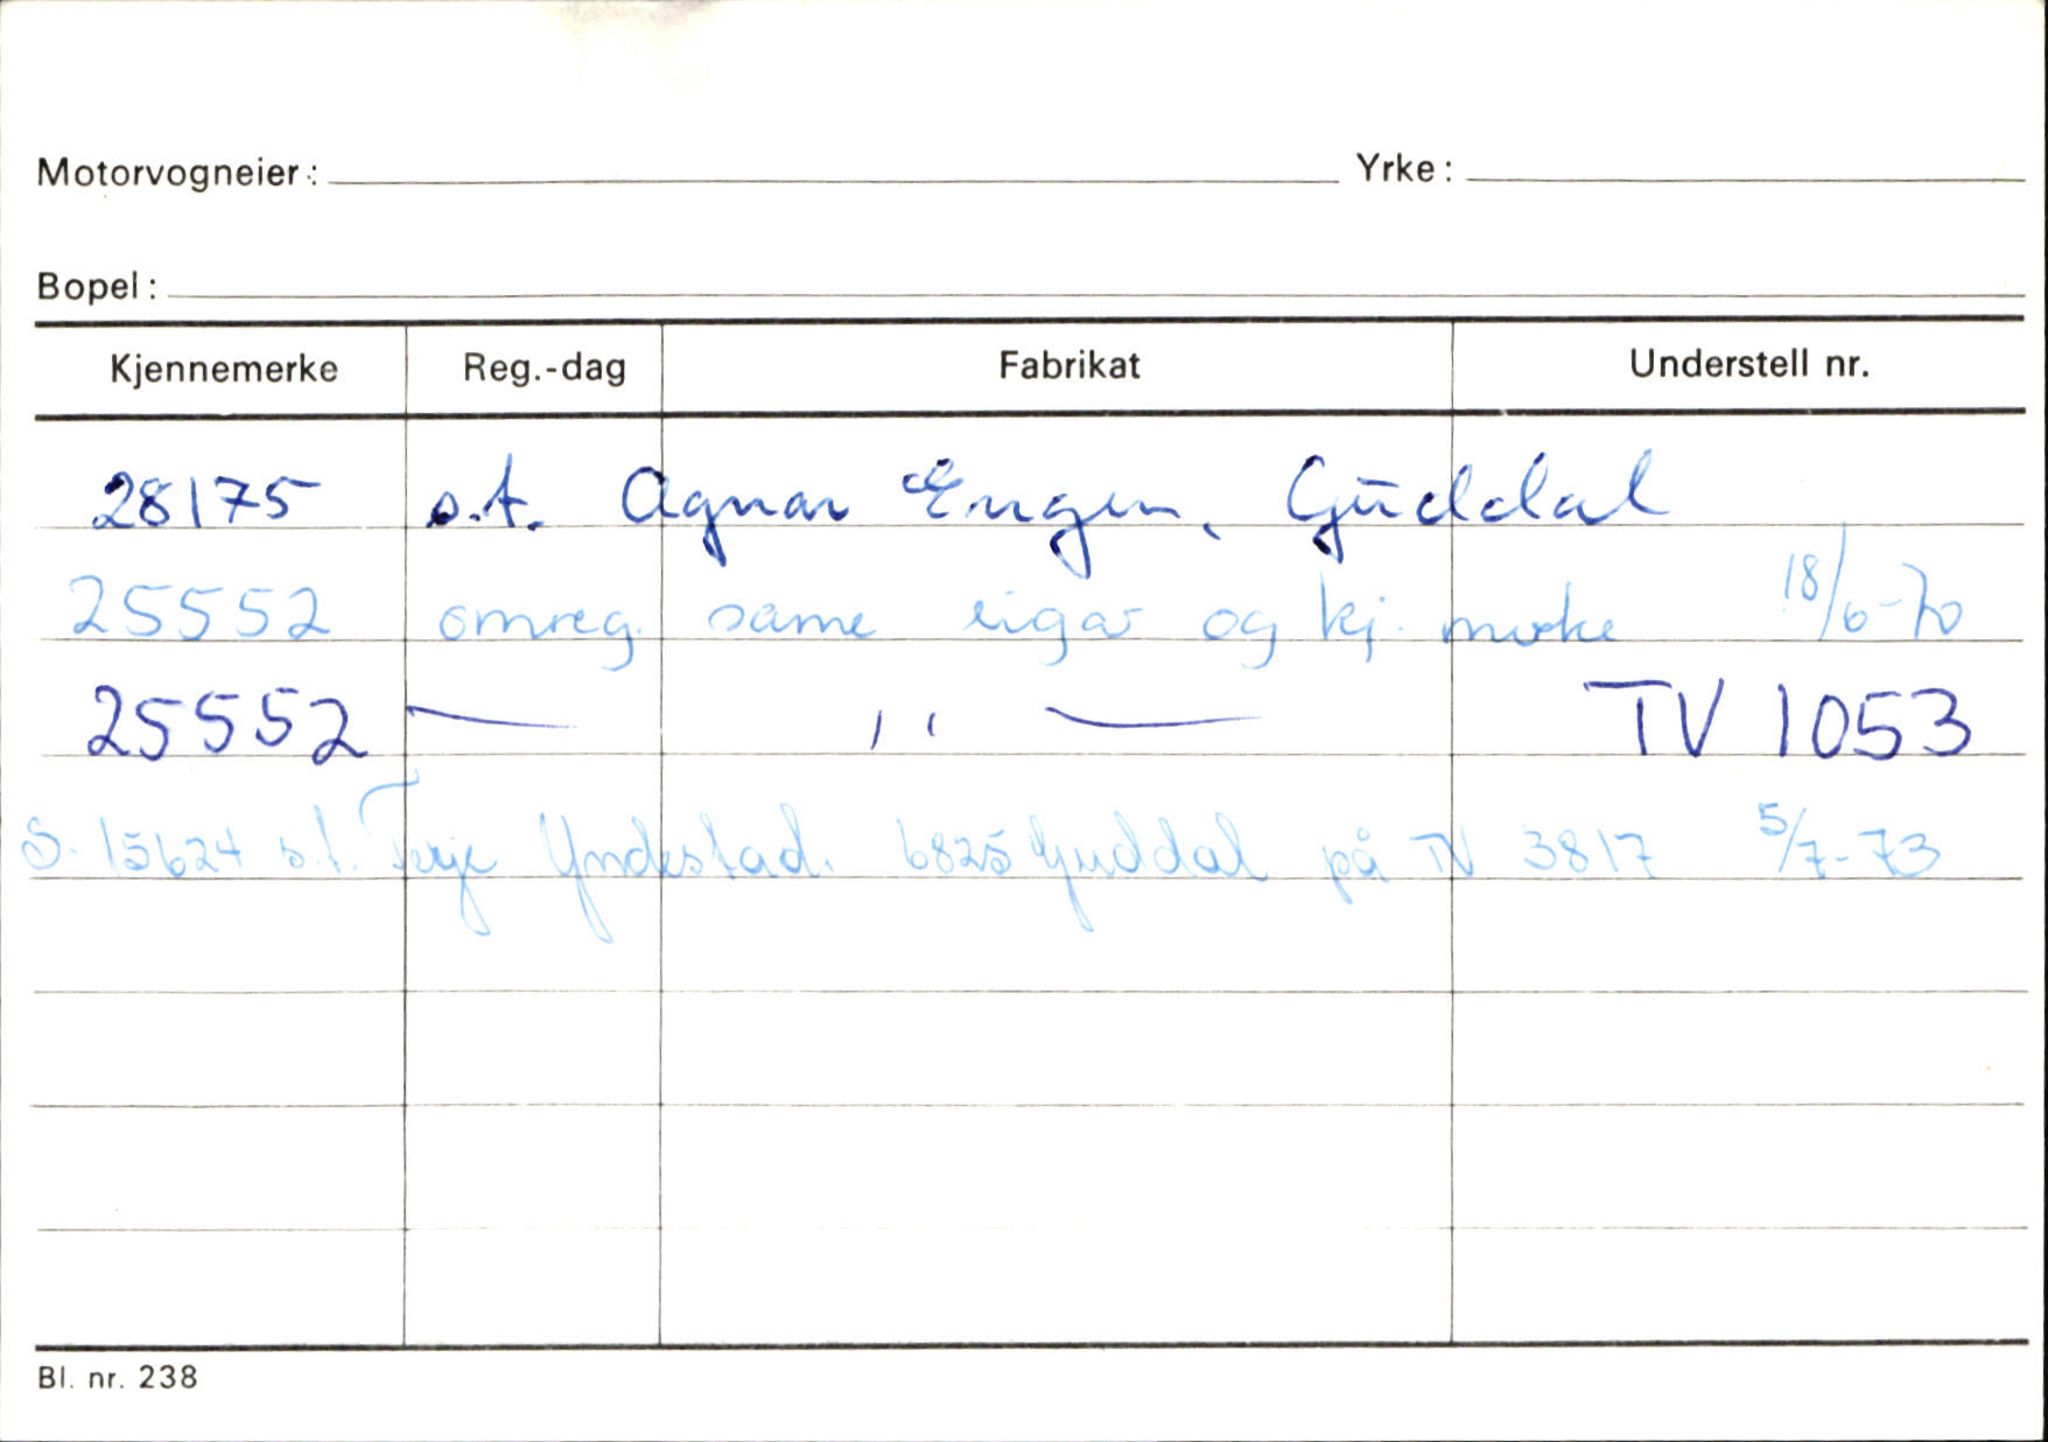 Motorvogneier: Yrke:
Bopel:
Kjennemerke Reg.-dag Fabrikat Understell nr.
28175 s.t. Agnar Engen, Guddal
25552 omreg. same eigar og kj. merke 18/6-70
25552 — " — TV 1053
S. 15624 s.t. Terje Yndestad. 6825 Guddal på TV 3817 5/7-73
Bl. nr. 238